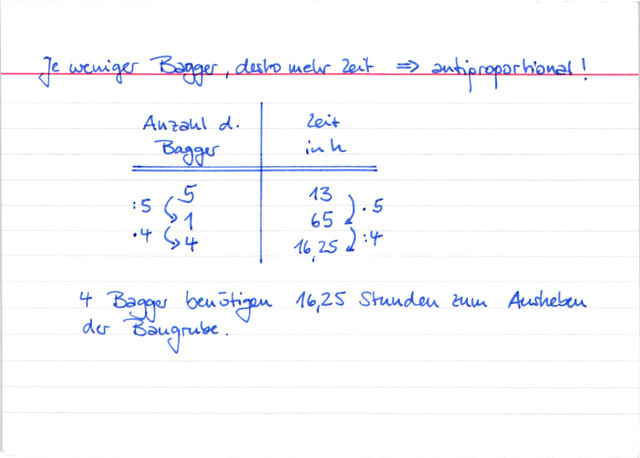 Je weniger Bagger, desto mehr Zeit ⇒ antiproportional!
Anzahl d. Bagger | Zeit in h
:5 5 | 13 · 5
·4 1 | 65 :4
4 | 16,25
4 Bagger benötigen 16,25 Stunden zum Ausheben
der Baugrube.